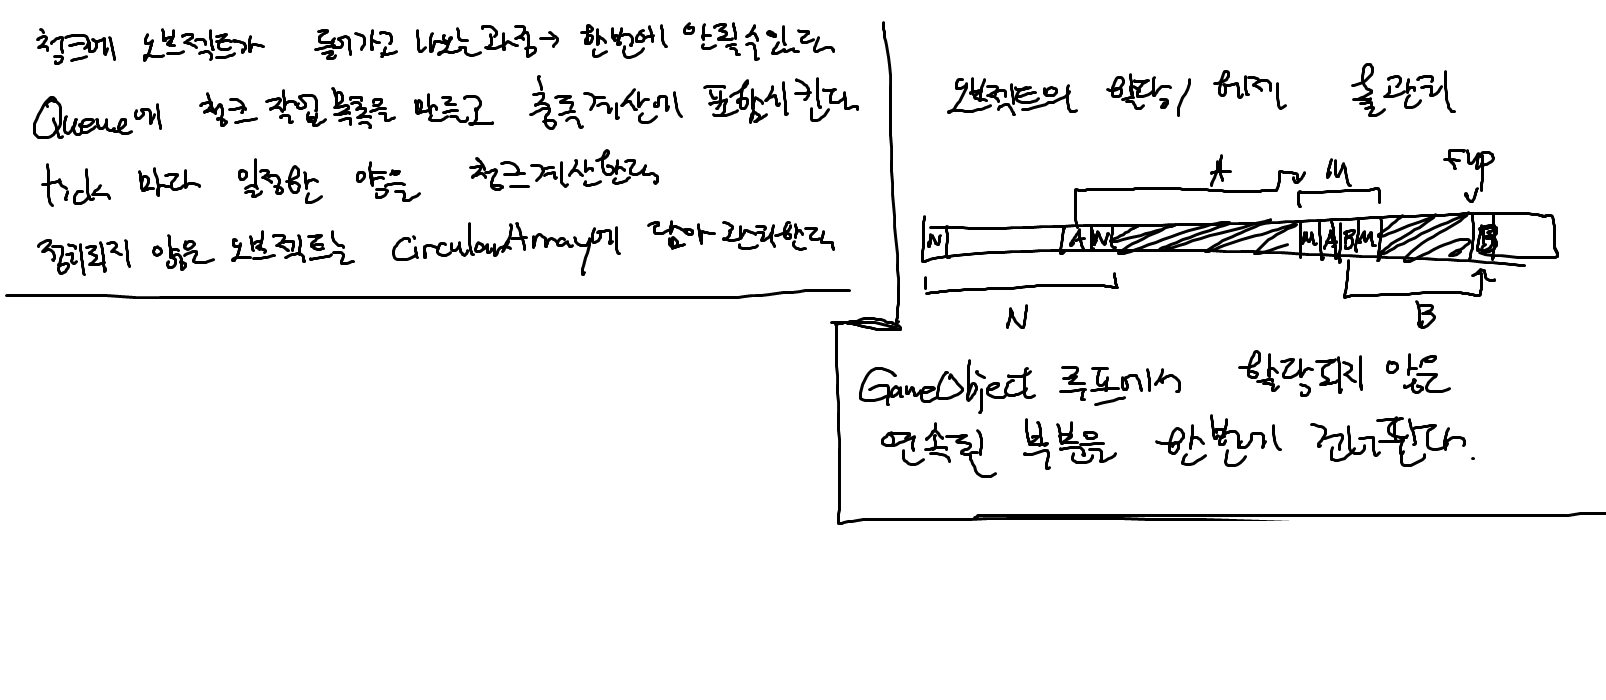 청크에 오브젝트가 들어가고 나오는 과정→ 한번에 안될수있다
Queue에 청크 작업목록을 만들고 충돌계산에 포함시킨다
tick 마다 일정한 양을 청크계산한다
정리되지 않은 오브젝트는 CircularArray에 담아 관리한다
오브젝트의 할당/해제 풀관리
A M Flip
N A N M A B M B
N B
GameObject 루프에서 할당되지 않은
연속된 부분을 한번에 건너뛴다.